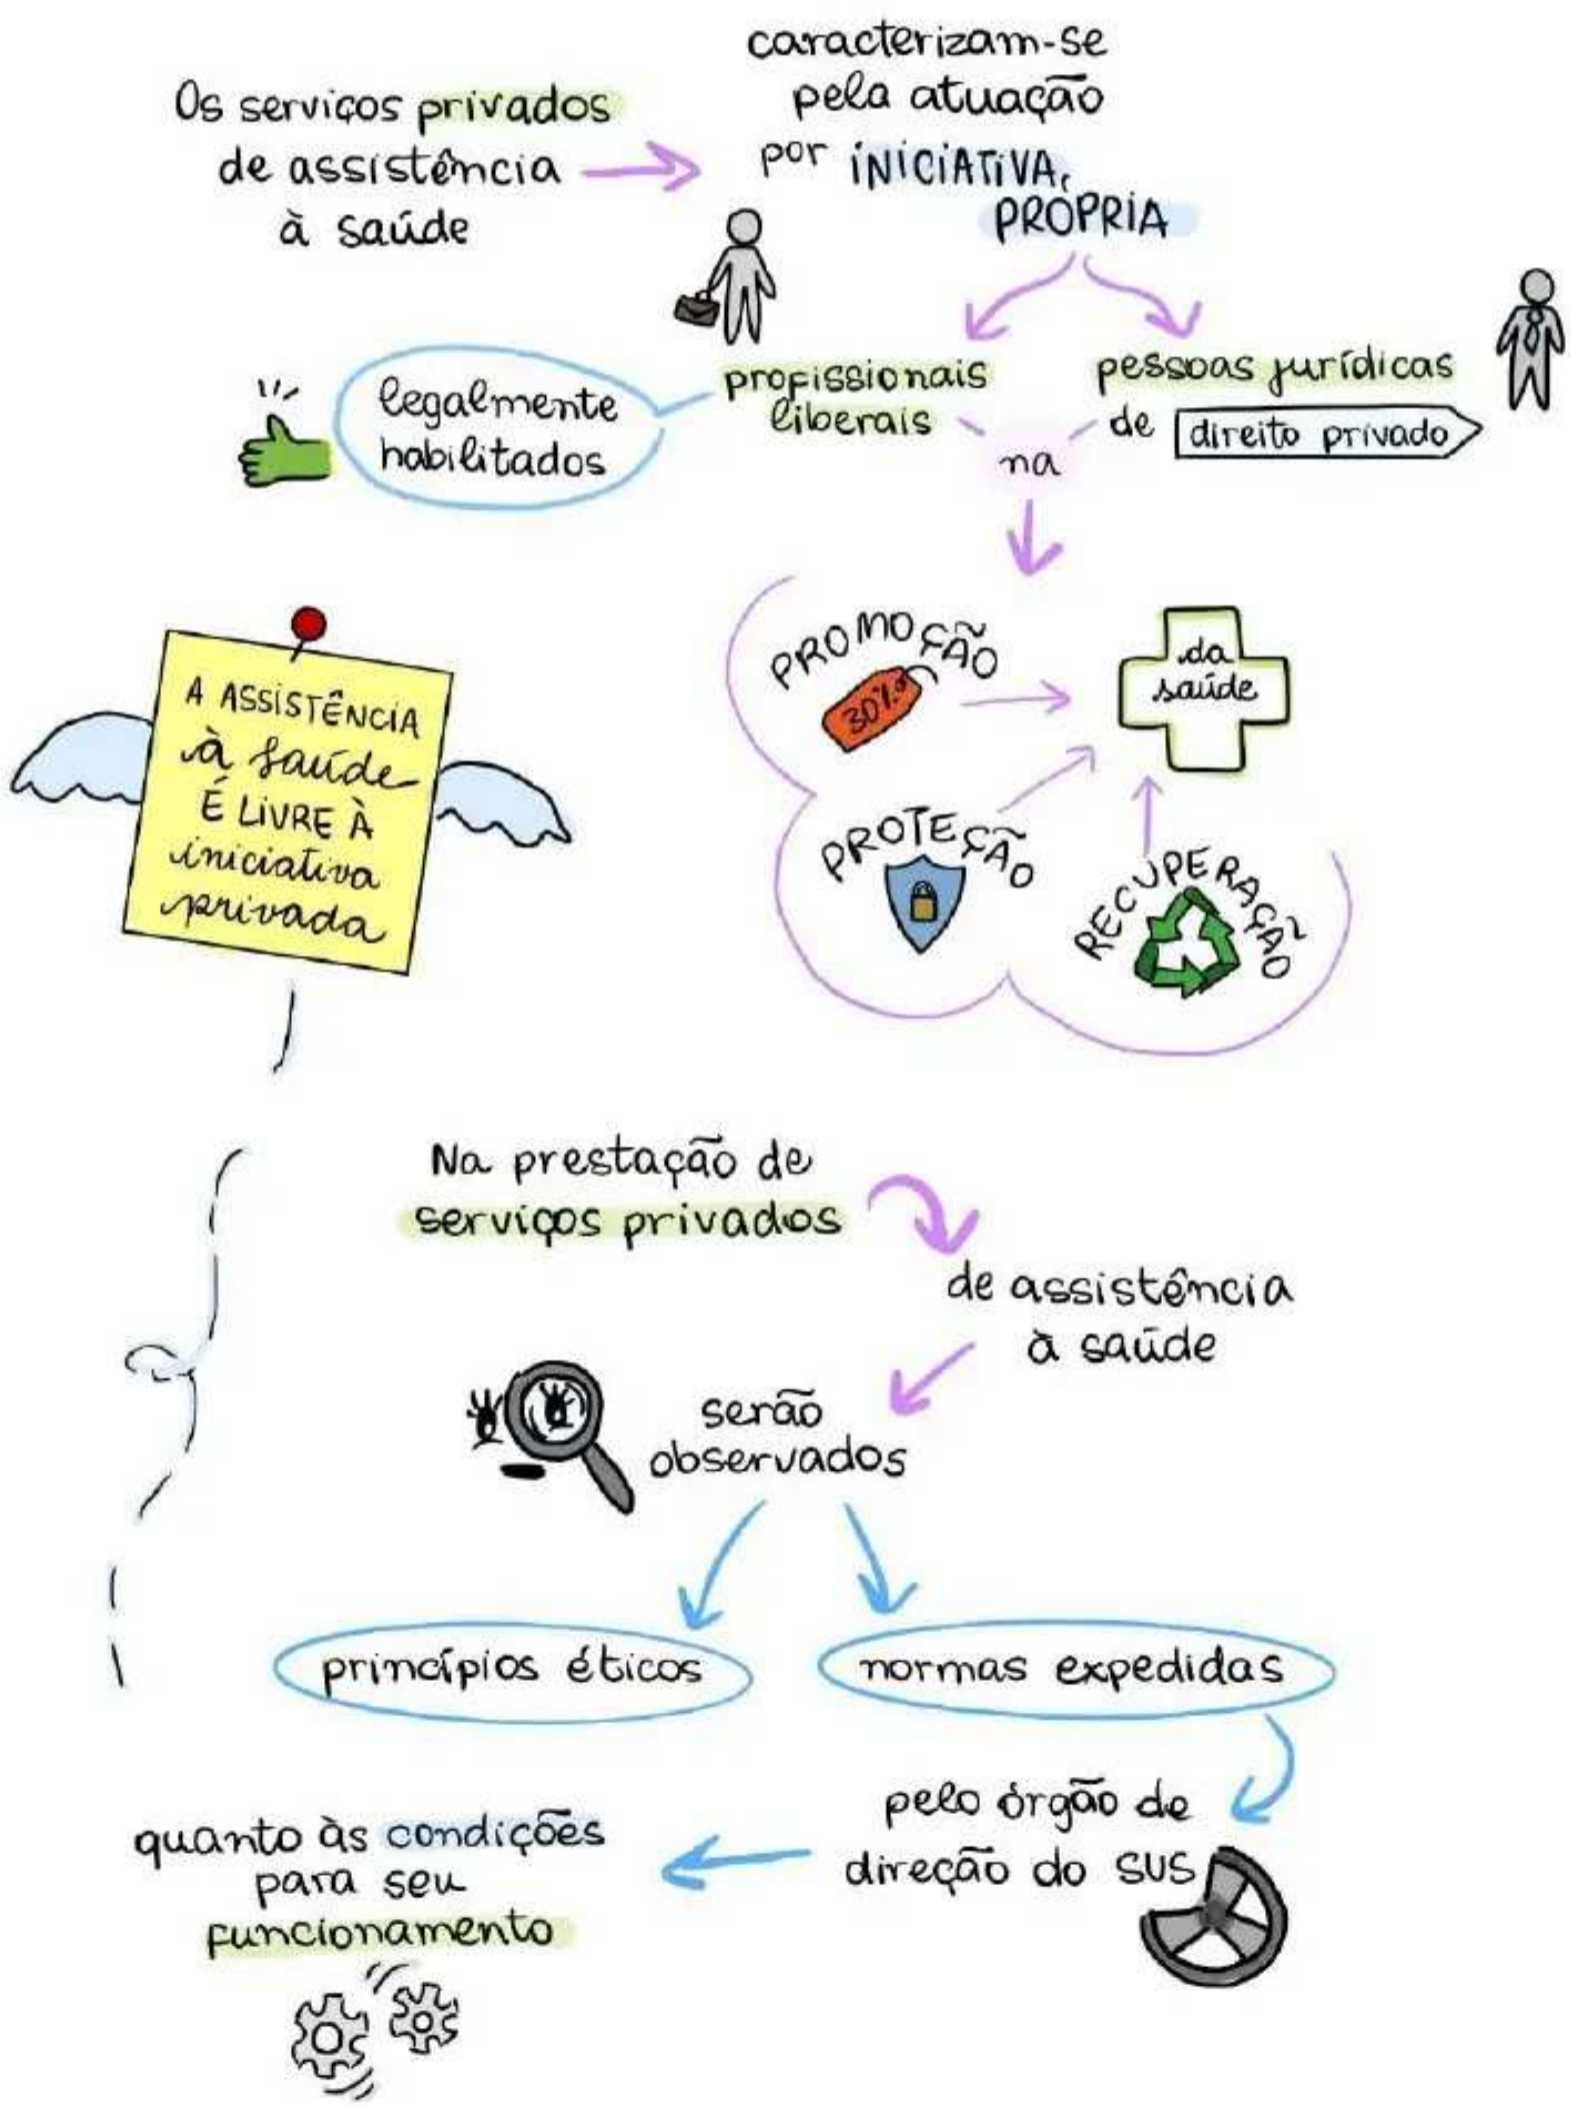 Os serviços privados
de assistência
à saúde
caracterizam-se
pela atuação
por INICIATIVA
PRÓPRIA
profissionais
liberais
legalmente
habilitados
pessoas jurídicas
de direito privado
na
PROMOÇÃO
30%
da
saúde
PROTEÇÃO
RECUPERAÇÃO
A ASSISTÊNCIA
à saúde
É LIVRE À
iniciativa
privada
Na prestação de
serviços privados
de assistência
à saúde
serão
observados
princípios éticos
normas expedidas
pelo órgão de
direção do SUS
quanto às condições
para seu
funcionamento